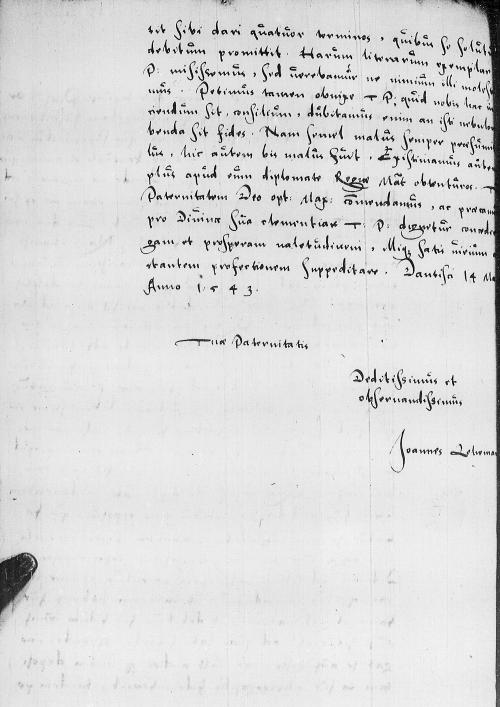 tit sibi dari quatuor terminos, quibus se soluturum
debitum promittit. Harum literarum exemplar
P: misissemus, sed uerebamur ne nimium illi molesti
mus. Petimus tamen obnixe T P: quid nobis hac in
endum sit, consilium, dubitamus enim an isti nebuloni
benda sit fides. Nam semel malus semper præsumitur
lus, hic autem bis malus fuit. Existimamus autem
plus apud eum diplomate Regiæ Mat obtenturos. T
Paternitatem Deo opt: Max: commendamus, ac precamur
pro Diuina sua clementia T. P: dignetur concedere
gam et prosperam ualetudinem, satis uirium
profectionem suppeditare. Dantisci 14
Anno 1543.
Tuæ Paternitatis
Deditissimus et
obseruandissimus
Joannes